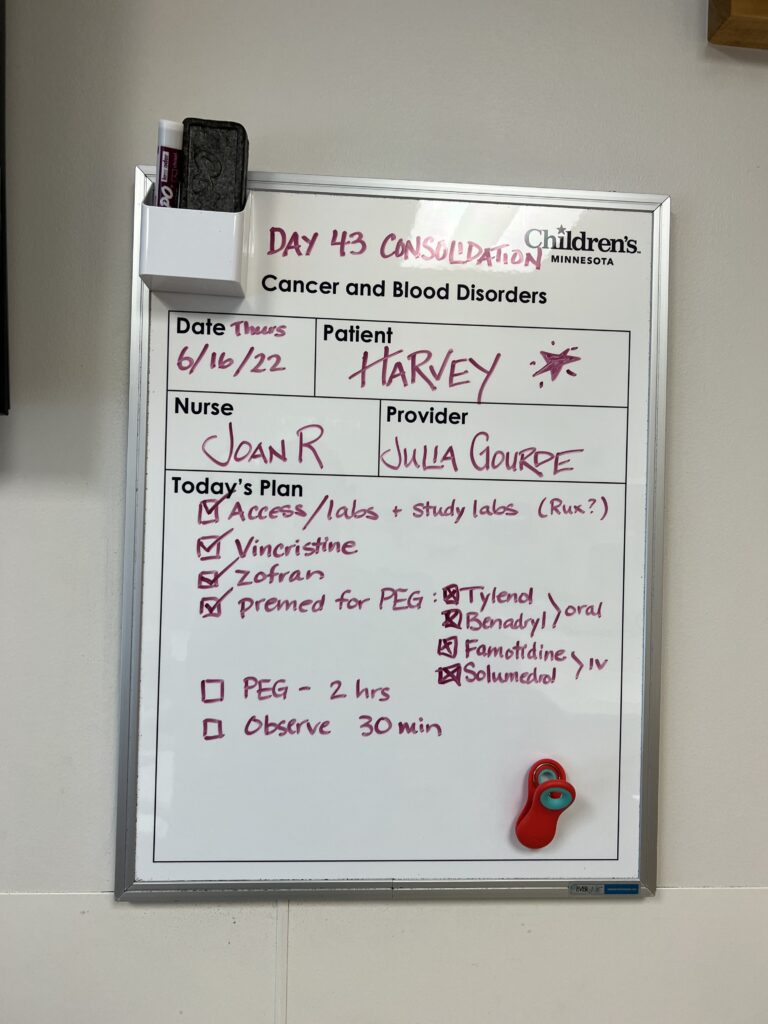 DAY 43 CONSOLIDATION
Children's
MINNESOTA
Cancer and Blood Disorders
Date Thurs
6/16/22
Patient
HARVEY
Nurse
JOAN R
Provider
JULIA GOURDE
Today's Plan
Access/labs + study labs (Rux?)
Vincristine
Zofran
premed for PEG : Tylenol
Benadryl
oral
Famotidine
Solumedrol
IV
PEG - 2 hrs
Observe 30 min